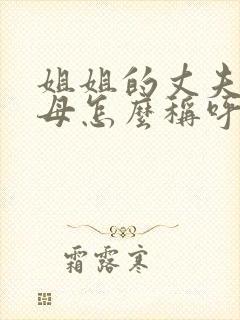 姐姐的丈夫
母怎麼稱呼
霜露寒